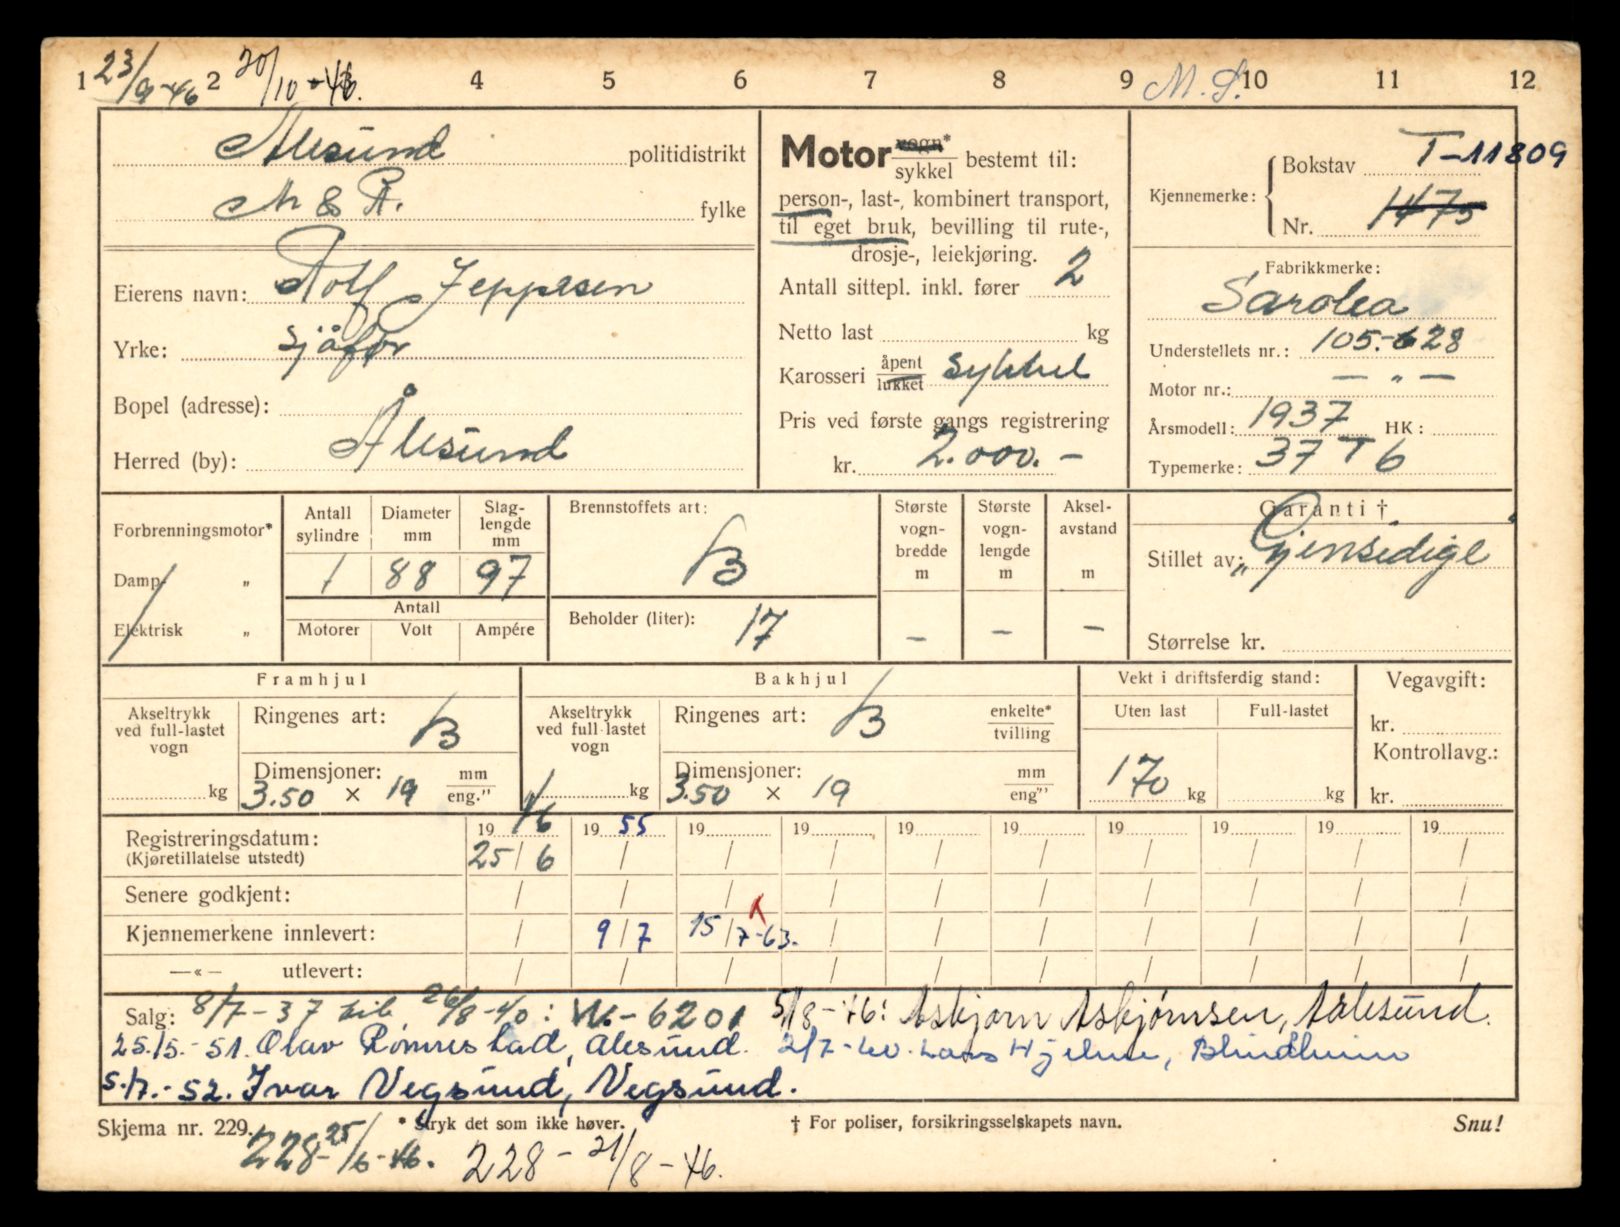 1 23/9-46 2 20/10-46. 4 5 6 7 8 9 M. S. 10 11 12
Ålesund politidistrikt
M & R. fylke
Eierens navn: Rolf Jeppesen
Yrke: Sjåfør
Bopel (adresse):
Herred (by): Ålesund
Motor vogn*/sykkel bestemt til:
person-, last-, kombinert transport,
til eget bruk, bevilling til rute-,
drosje-, leiekjøring.
Antall sittepl. inkl. fører 2
Netto last kg
Karosseri åpent/lukket Sykkel
Pris ved første gangs registrering
kr. 2.000.-
Kjennemerke: Bokstav T-11809
Nr. 1475
Fabrikkmerke:
Sarolea
Understellets nr.: 105.628
Motor nr.: — " —
Årsmodell: 1937 HK:
Typemerke: 37 T 6
Forbrenningsmotor*
Damp- "
Elektrisk "
Antall sylindre Diameter mm Slag-lengde mm
1 88 97
Antall
Motorer Volt Ampére
Brennstoffets art:
B
Beholder (liter): 17
Største vogn-bredde m Største vogn-lengde m Aksel-avstand m
— — —
Garanti †
Stillet av: „Gjensidige"
Størrelse kr.
Framhjul
Akseltrykk ved full-lastet vogn kg
Ringenes art: B
Dimensjoner: mm
3.50 × 19 eng."
Bakhjul
Akseltrykk ved full-lastet vogn kg
Ringenes art: B enkelte*/tvilling
Dimensjoner: mm
3.50 × 19 eng"
Vekt i driftsferdig stand:
Uten last Full-lastet
170 kg kg
Vegavgift:
kr.
Kontrollavg.:
kr.
Registreringsdatum: 19 46 19 55 19 19 19 19 19 19 19 19
(Kjøretillatelse utstedt) 25/6 / / / / / / / / /
Senere godkjent: / / / / / / / / / /
Kjennemerkene innlevert: / 9/7 15/7-63. / / / / / / /
—«— utlevert: / / / / / / / / / /
Salg: 8/7-37 til 26/8-40: W-6201 5/8-46: Asbjørn Asbjørnsen, Aalesund.
25./5.-51. Olav Rømmestad, Ålesund. 2/7-60. Lars Hjelme, Blindheim
5./7.-52. Ivar Vegsund, Vegsund.
Skjema nr. 229. * Stryk det som ikke høver. † For poliser, forsikringsselskapets navn. Snu!
228-25/6-46. 228-21/8-46.